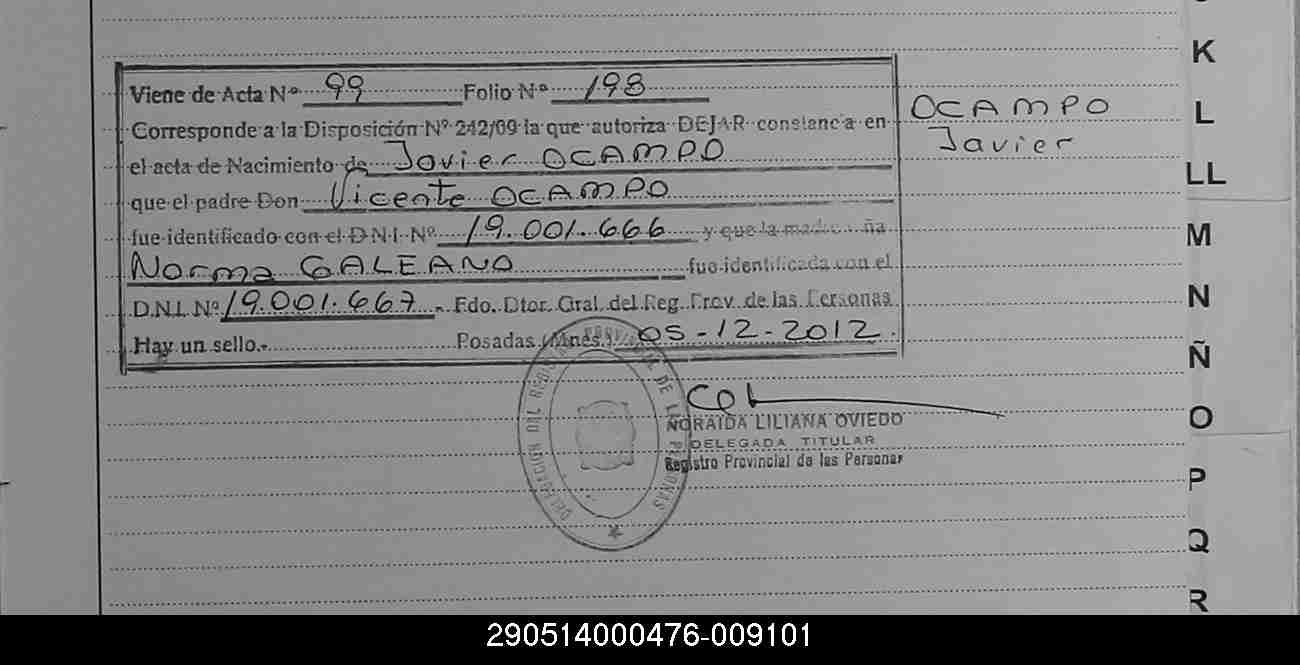 K
Viene de Acta Nº 99 Folio Nº 198
OCAMPO
L
Corresponde a la Disposición Nº 242/09 la que autoriza DEJAR constancia en
Javier
el acta de Nacimiento de Javier OCAMPO
LL
que el padre Don Vicente OCAMPO
fue identificado con el D.N.I. Nº 19.001.666 y que la madre ña
M
Norma GALEANO fue identificada con el
D.N.I. Nº 19.001.667.- Fdo. Dtor. Gral. del Reg. Prov. de las Personas
N
Hay un sello.- Posadas (Mnes.) 05-12-2012.
Ñ
NORAIDA LILIANA OVIEDO
O
DELEGADA TITULAR
Registro Provincial de las Personas
DELEGACION DEL REGISTRO PROVINCIAL DE LAS PERSONAS
P
Q
R
290514000476-009101